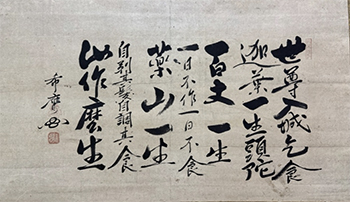 世尊入城乞食
迦葉一生頭陀
百丈一生
一日不作一日不食
藥山一生
自制其
自調其食
作麼生